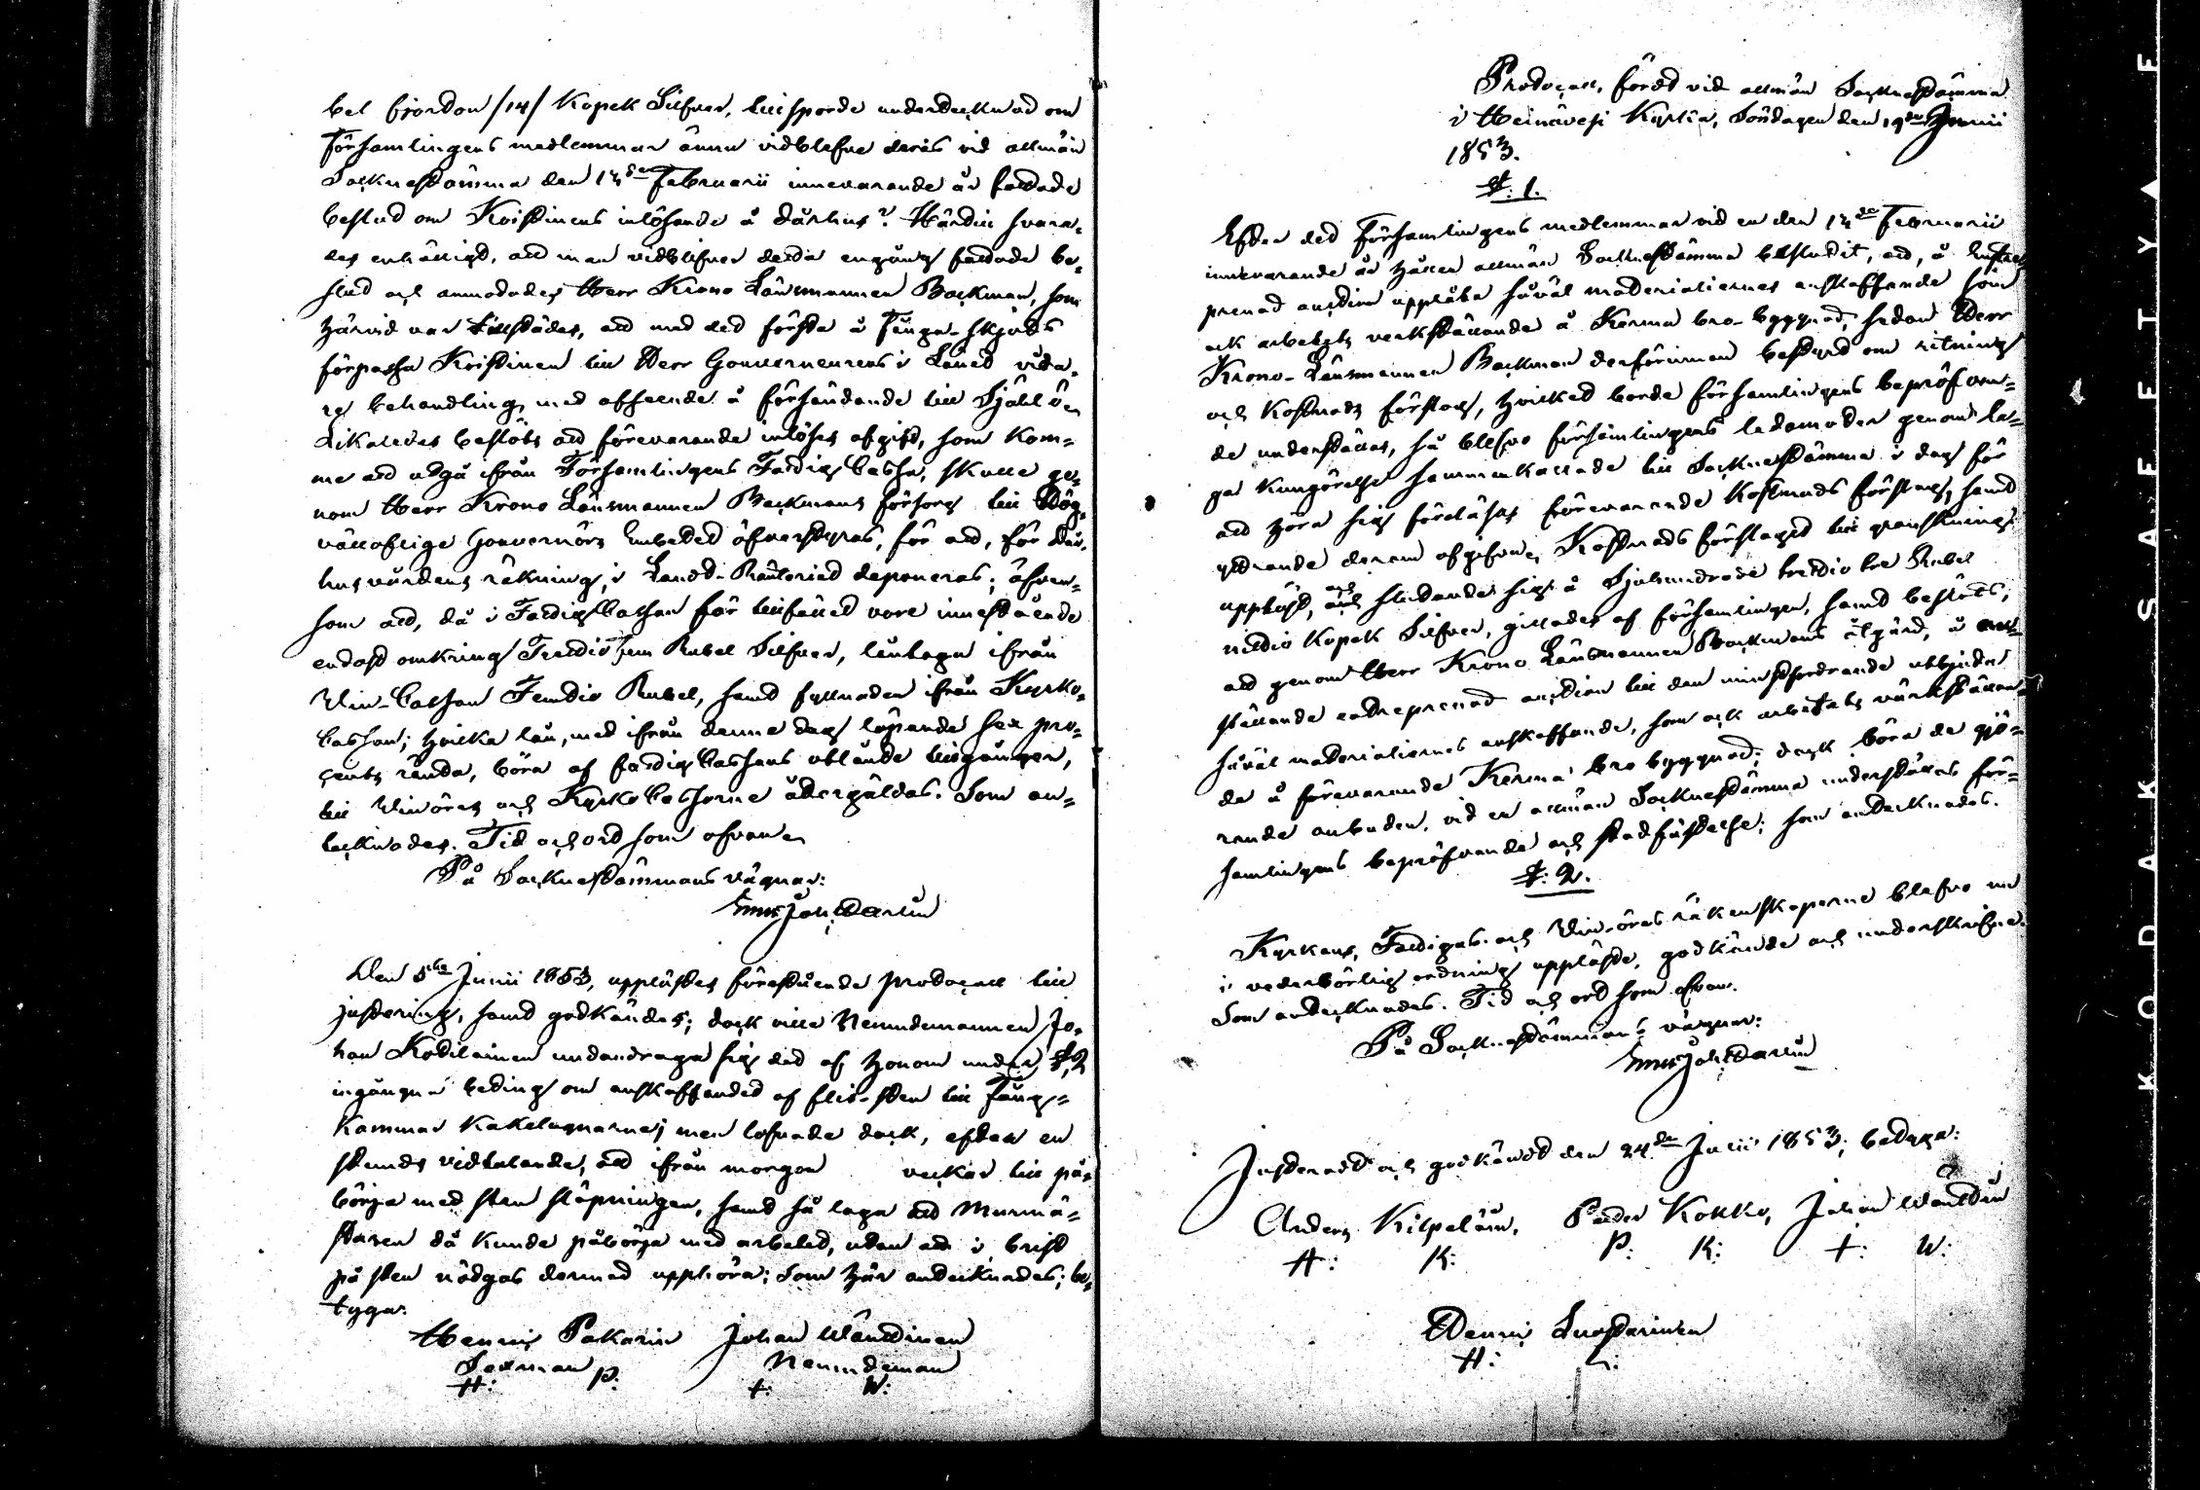 bel fjorton /14/ Kopek Silfver, tillsporde undertecknad om
Församlingens medlemmar ännu vidblefve deras vid allmän
Socknestämma den 13de Februarii innevarande år fattade
beslut om Kristinens inlösande å dårhus? Härtill svara-
des enhälligt, att man vidblifver detta engång fattade be-
slut och anmodades Herr Krono Länsmannen Backman, som
härvid var tillstädes, att med det första å Fånge-skjuts
förpassa Kristinen till Herr Gouverneurens i Länet vida-
re behandling, med afseende å försändande till Själö.
Likaledes beslöts att förevarande inlösas afgift, som kom-
me att utgå ifrån Församlingens Fattigcassa, skulle ge-
nom Herr Krono Länsmannen Backmans försorg till Hög-
vällofliga Gouvernörs Embetet öfverstyras, för att, för dår-
husvårdens räkning, i Landt-Ränteriet deponeras; äfven-
som att, då i Fattigcassan för tillfället vore innestående
endast omkring Trettio fem Rubel Silfver, låntaga ifrån
Vin-Cassan Femtio Rubel, samt fyllnaden ifrån Kyrko-
Cassan; hvilka lån, med ifrån denna dag löpande sex pro-
cents ränta, böra af fattigCassans utlånte tillgångar,
till Vinöres och KyrkoCassorne återgäldas. Som an-
tecknades. Tid och ort som ofvan.
På Socknestämmans vägnar:
Joh:
Den 5te Junii 1853, upplästes förestående protocoll till
justering, samt godkändes; dock ville Nemndemannen Jo-
han Kotilainen undandraga sig det af honom under §.2
ingångna beting om anskaffandet af flis-sten till Fång-
kammar kakelugnarne; men lofvade dock, efter en
stunds vidtalande, att ifrån morgon veckar till på-
börja med sten släpningen, samt så laga att Murmä-
staren då kunde påbörja med arbetet, utan att i brist
på sten nödgas dermed upphöra; Som här antecknades; be-
tyga:
Henric Pakarin Johan Wänttinen
Sexman Nemndeman
H: P: +: W:
Protocoll, fördt vid allmän Socknestämma
i Heinävesi Kyrka, Söndagen den 19de Junii
1853.
§. 1.
Efter det Församlingens medlemmar vid en den 13de Februarii
innevarande år hållen allmän Socknestämma beslutit, att, å Entre-
prenad auction upplåta såväl materialiernes anskaffande som
ock arbetets verkställande å Kerma bro-byggnad, sedan Herr
Krono-Länsmannen Backman derförinnan bestyrt om ritning
och kostnads förslag, hvilket borde församlingens bepröfvan-
de underställas, så blefvo församlingens ledamöter genom la-
ga kungörelse sammankallade till Socknestämma i dag för
att höra sig föreläsas förevarande Kostnads förslag, samt
yttrande derom afgifva. Kostnads förslaget till granskning
uppläst, och slutande sig å Sjuhundrade trettio tre Rubel
nittio Kopek Silfver, gillades af församlingen, samt beslöts,
att genom Herr Krono Länsmannen Backmans åtgärd, å an-
ställande entreprenad auction till den minstfordrande utbjuda
såväl materialiernes anskaffande, som ock arbetets värkställan-
de å förevarande Kerma bro byggnad; dock böra de gjö-
rande anbuden, vid en allmän Socknestämma underställas för-
samlingens bepröfvande och stadfästelse; som antecknades.
§. 2.
Kyrkans, Fattigas och Vinöres räkenskaperne blefvo nu
i vederbörlig ordning upplästa, godkände och underskrifne.
Som antecknades. Tid och ort som ofvan.
På Socknestämmans vägnar:
Joh:
Justeradt och godkändt den 24de Julii 1853; betyga:
Anders Kilpeläin, Petter Kokko, Johan Wänttin
A: K: P: K: +: W:
Henric Luostarinen
H: L:
KODAK SAFETY ▲ F